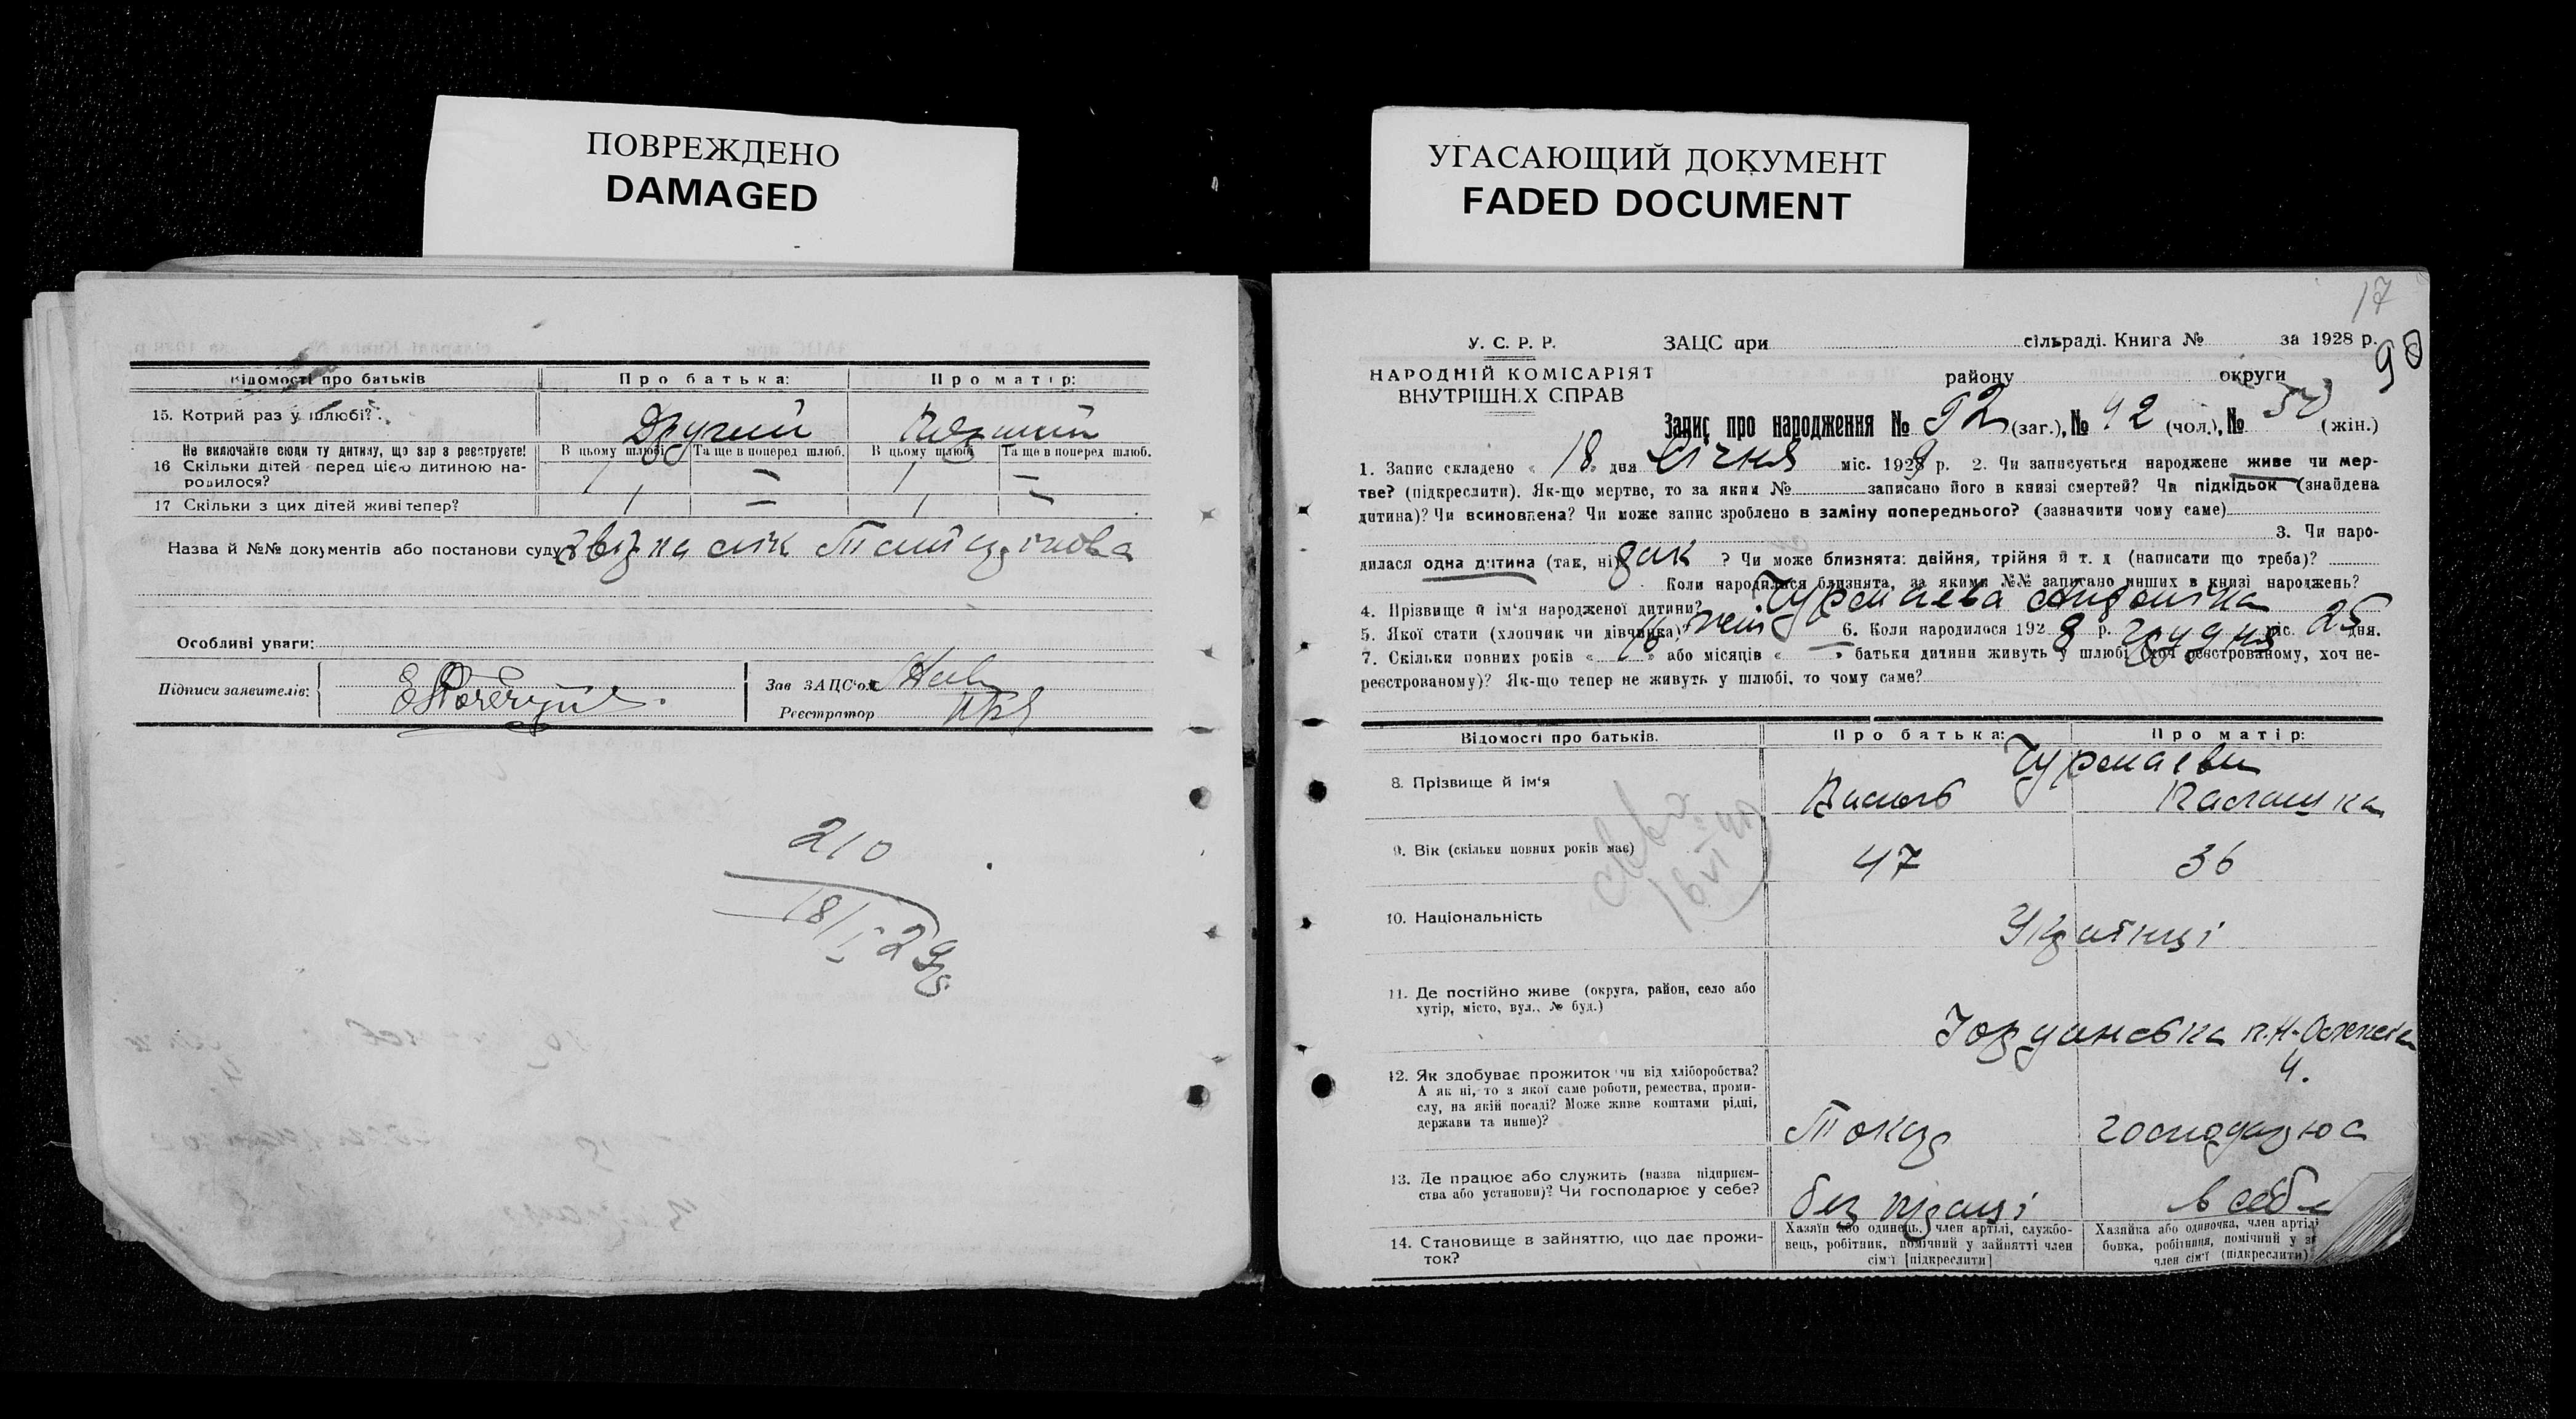 ПОВРЕЖДЕНО
DAMAGED
УГАСАЮЩИЙ ДОКУМЕНТ
FADED DOCUMENT
Відомості про батьків
Про батька:
Про матір:
15. Котрий раз у шлюбі?
Другий
Не включайте сюди ту дитину, що зараз реєструєте!
В цьому шлюбі
Та ще в поперед шлюб.
В цьому шлюбі
Та ще в поперед шлюб.
16 Скільки дітей перед цією дитиною на-
родилося?
1 — 1 —
17 Скільки з цих дітей живі тепер?
1 — 1 —
Назва й №№ документів або постанови суду
Особливі уваги:
Підписи заявителів:
Зав ЗАЦС'ом
Реєстратор
210
18/I 29
17
98
У. С. Р. Р.
ЗАЦС при сільраді. Книга № за 1928 р.
НАРОДНІЙ КОМІСАРІЯТ
ВНУТРІШНІХ СПРАВ
району округи
Запис про народження № 92 (заг.), № 42 (чол.), № 50 (жін.)
1. Запис складено « 18 » дня Січня міс. 1929 р. 2. Чи записується народжене живе чи мер-
тве? (підкреслити). Як-що мертве, то за яким № записано його в книзі смертей? Чи підкідьок (знайдена
дитина)? Чи всиновлена? Чи може запис зроблено в заміну попереднього? (зазначити чому саме)
3. Чи наро-
дилася одна дитина (так, ні) так ? Чи може близнята: двійня, трійня й т. д (написати що треба)?
Коли народилися близнята, за якими №№ записано инших в книзі народжень?
4. Прізвище й ім'я народженої дитини?
5. Якої стати (хлопчик чи дівчинка)? жін 6. Коли народилося 1928 р. Грудня міс. 25 дня.
7. Скільки повних років « » або місяців « — » батьки дитини живуть у шлюбі (хоч реєстрованому, хоч не-
реєстрованому)? Як-що тепер не живуть у шлюбі, то чому саме?
Відомості про батьків.
Про батька:
Про матір:
8. Прізвище й ім'я
9. Вік (скільки повних років має)
47
36
10. Національність
Українці
11. Де постійно живе (округа, район, село або
хутір, місто, вул., № буд.)
4.
12. Як здобуває прожиток чи від хліборобства?
А як ні, то з якої саме роботи, ремества, проми-
слу, на якій посаді? Може живе коштами рідні,
держави та инше)?
Токар
господарює
13. Де працює або служить (назва підприєм-
ства або установи)? Чи господарює у себе?
без праці
в себе
14. Становище в зайняттю, що дає прожи-
ток?
Хазяїн або одинець, член артілі, службо-
вець, робітник, помічний у зайнятті член
сім'ї [підкреслити]
Хазяйка або одиночка, член артілі
бовка, робітниця, помічний у за
член сім'ї (підкреслити)